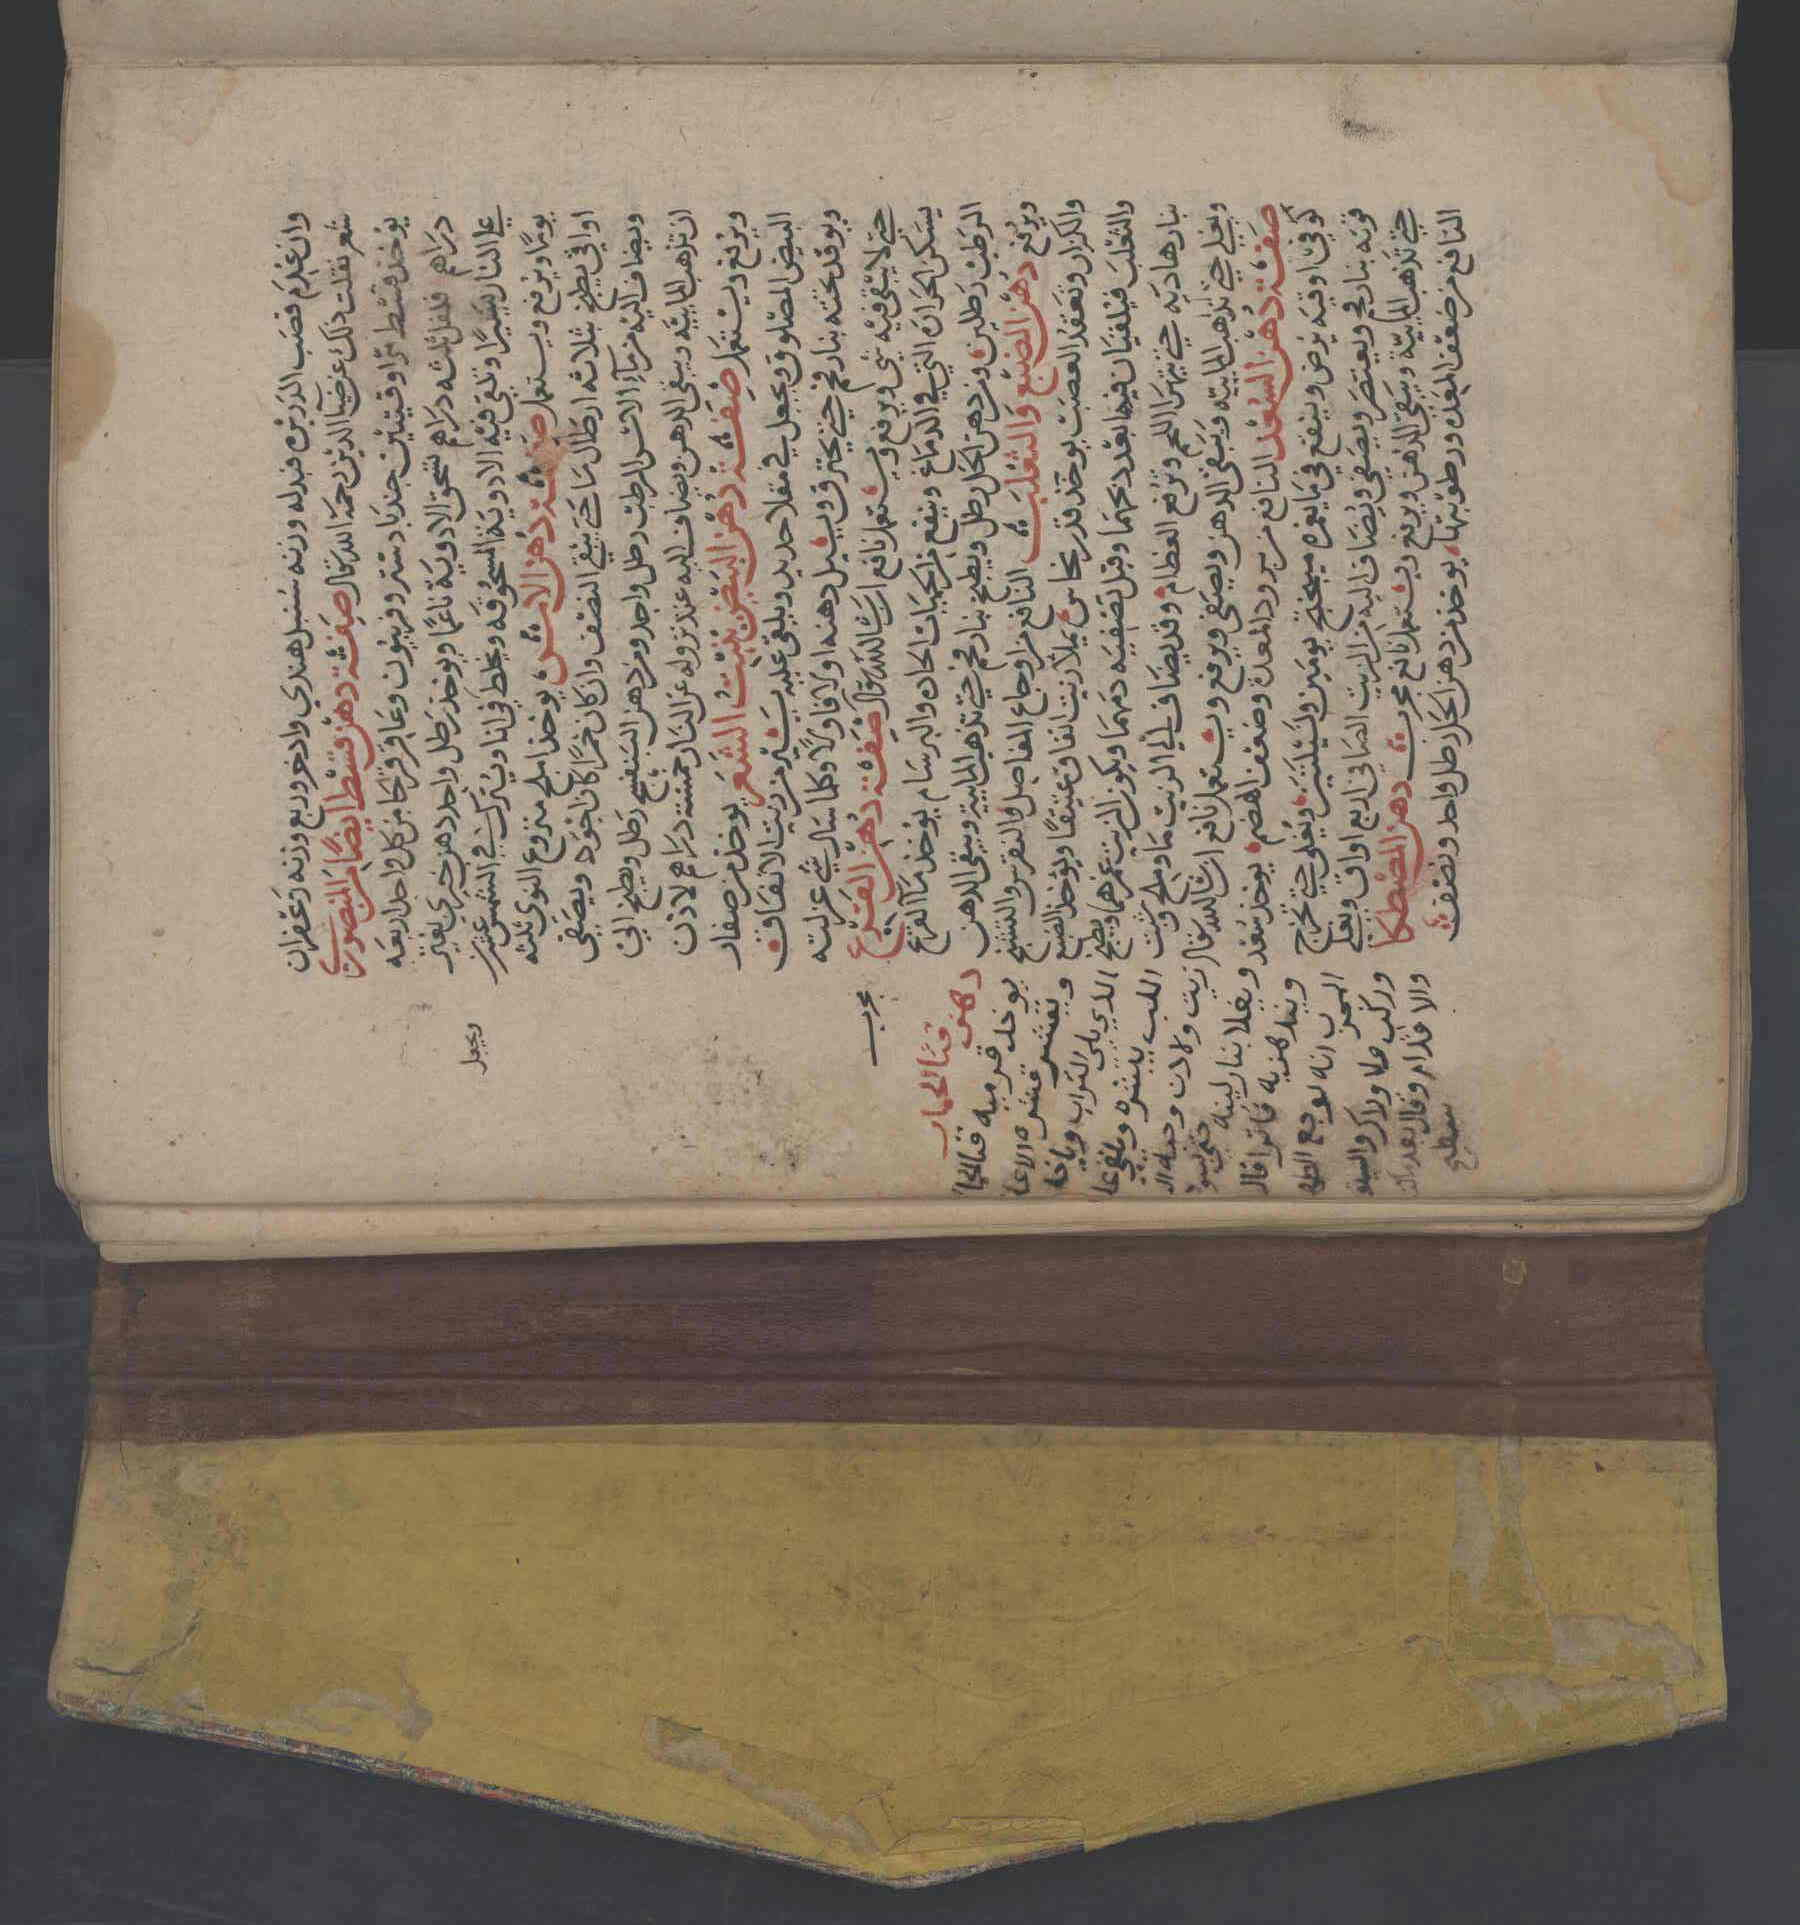 وان عدم قصب الذريره فبدله وزنه سنبل هندي واذخر وربع وزنه زعفران
شعر نقلت ذلك عن ضيا الدين رحمه الله تعالى صفة دهن قسط ايضا من المنصوري
يوخذ قسط مر اوقيتين جندبادستر وفربيون وعاقرقرحا من كل واحد اربعه
دراهم فلفل ثلثه دراهم تسحق الادوية ناعما ويوخذ رطل واحد دهن خيري يفتر
علي النار يسيرا وتلقي فيه الادوية المسحوقه ويخلط في انا ويترك في الشمس عشرين
يوما ويرفع ويستعمل صفة دهن الاس يوخذ املج منزوع النوي ثلثه
اواقي يطبخ بثلاثه ارطال ماء حتي يبقي النصف وان كان خمرا كان اجود ويصفي
ويضاف اليه من ماء الاس الرطب رطل واحد ومن دهن البنفسج رطل ويطبخ الي
ان تذهب المايية ويبقي الدهن ويضاف اليه عند نزوله عن النار خمسة دراهم لاذن
ويرفع ويستعمل صفة دهن البيض ينبت الشعر يوخذ من صفار
البيض المصلوق ويجعل في مقلا حديد ويلقي عليه يسير من زيت الانفاق
ويوقد تحته بنار فحم حتي يحترق ويسيل دهنه اولا فاولا وكلما سال شي عزلته
حتي لا يبقي فيه شي ويرفع ويستعمل نافع ان شا الله تعالى صفة دهن القرع
يسكن الحراره التي في الدماغ وينفع من الحميات الحاده والبرسام يوخذ ماء القرع
الرطب رطلين ومن دهن الحل رطل ويطبخ بنار فحم حتي تذهب المايية ويبقي الدهن
ويرفع دهن الضبع والثعلب النافع من اوجاع المفاصل والنقرس والتشنج
والكزاز وتعقد العصب يوخذ قدر نحاس يملا زيت انفاق عتيقا ويوخذ الضبع
والثعلب فيلقيان فيها بعد ذبحهما وقبل تصفيه دمهما ويكون الزيت غمرهما ويطبخ
بنار هاديه حتي يتهرا اللحم وترفع العظام وقد يضاف الي الزيت ماء وملح وشبت
ويغلي حتي تذهب المايية ويبقي الدهن ويصفي ويرفع ويستعمل نافع ان شا الله تعالى
صفة دهن السعد النافع من برد المعدة وضعف الهضم يوخذ سعد
كوفي اوقيه يرض وينقع في ما يغمره ميبختج يومين وليلتين ويغلي حتي تخرج
قوته بنار فحم ويعتصر ويصفي ويضاف اليه من الزيت الصافي اربع اواق ويغلي
حتي تذهب المايية ويبقي الدهن ويرفع ويستعمل نافع مجرب دهن المصطكا
النافع من ضعف المعده ورطوبتها يوخذ من دهن الحل رطل واحد ونصف
ويجعل
مجرب
دهن قثا الحمار
يوخذ قثا الحمار
ويقشر
الذي يلي التراب وياخذ
اللب
زيت
ويغلا بنار لينه حتي
فاترا